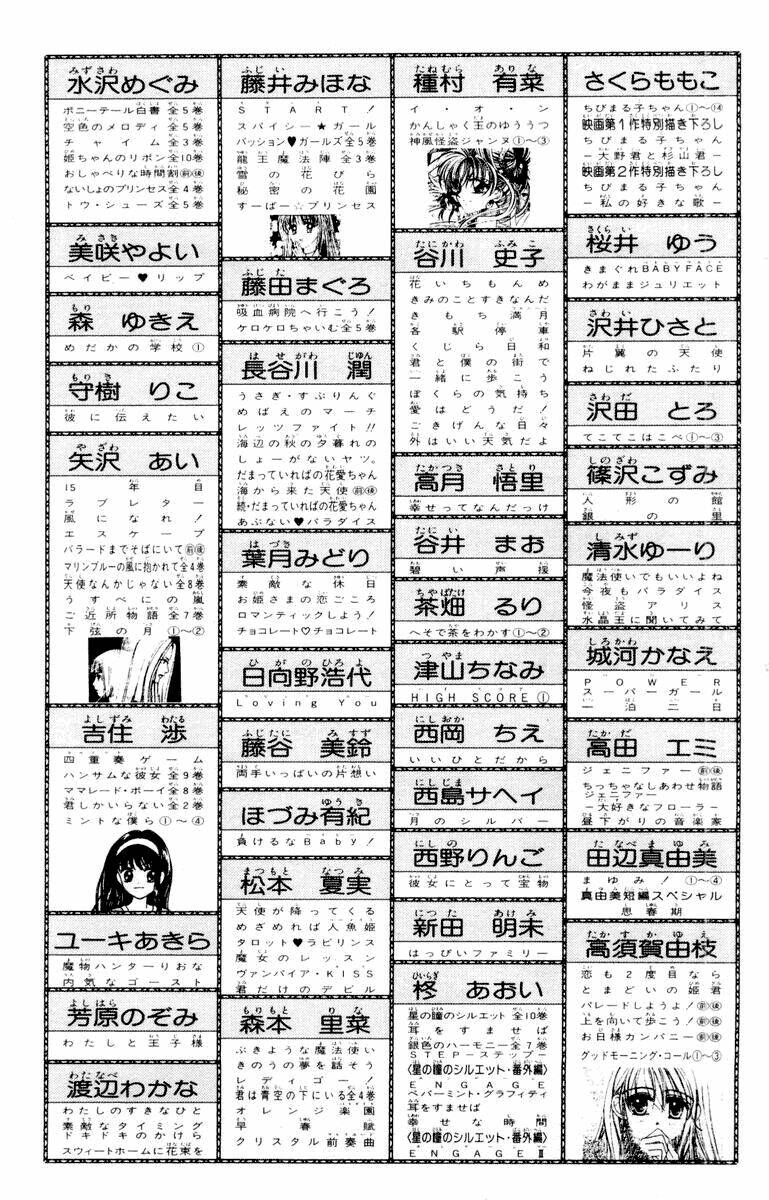 さくらももこ
ちびまる子ちゃん①〜⑭
映画第1作特別描き下ろし
ちびまる子ちゃん
ー大野君と杉山君ー
映画第2作特別描き下ろし
ちびまる子ちゃん
ー私の好きな歌ー
桜井 ゆう
きまぐれBABYFACE
わがままジュリエット
沢井ひさと
片翼の天使
ねじれたふたり
沢田 とろ
てこてこはこべ①〜③
篠沢こずみ
人形の館
銀の里
清水ゆーり
魔法使いでもいいよね
今夜もパラダイス
怪盗アリス
水晶玉に聞いてみて
城河かなえ
POWER
スーパーガール
一泊二日
高田 エミ
ジェニファー前後
ちっちゃなしあわせ物語
ジェニファー
ー大好きなフローラー
昼下がりの音楽家
田辺真由美
まゆみ!①〜④
真由美短編スペシャル
思春期
高須賀由枝
恋も2度目なら
とまどいの姫君
パレードしようよ!前後
上を向いて歩こう!前後
お日様カンパニー前後
グッドモーニング・コール①〜③
種村 有菜
イ・オ・ン
かんしゃく玉のゆううつ
神風怪盗ジャンヌ①〜③
谷川 史子
花いちもんめ
きみのことすきなんだ
きもち満月
各駅停車
くじら日和
君と僕の街で
一緒に歩こう
ぼくらの気持ち
愛はどうだ!
ごきげんな日々
外はいい天気だよ
高月 悟里
幸せってなんだっけ
谷井 まお
碧い声援
茶畑 るり
へそで茶をわかす①〜②
津山ちなみ
HIGH SCORE①
西岡 ちえ
いいひとだから
西島サヘイ
月のシルバー
西野りんご
彼女にとって宝物
新田 明未
はっぴいファミリー
柊 あおい
星の瞳のシルエット 全10巻
耳をすませば
銀色のハーモニー全7巻
STEPーステップー
〈星の瞳のシルエット・番外編〉
ENGAGE
ペパーミント・グラフィティ
耳をすませば
幸せな時間
〈星の瞳のシルエット・番外編〉
ENGAGEⅡ
藤井みほな
START!
スパイシー★ガール
パッション♥ガールズ全5巻
龍王魔法陣 全3巻
雪の花びら
秘密の花園
すーぱー☆プリンセス
藤田まぐろ
吸血病院へ行こう!
ケロケロちゃいむ全5巻
長谷川 潤
うさぎ・すぷりんぐ
めばえのマーチ
レッツファイト!!
海辺の秋の夕暮れの
しょーがないヤツ。
だまっていればの花愛ちゃん
海から来た天使前後
続・だまっていればの花愛ちゃん
あぶない♥パラダイス
葉月みどり
素敵な休日
お姫さまの恋ごころ
ロマンティックしよう!
チョコレート♡チョコレート
日向野浩代
Loving You
藤谷 美鈴
両手いっぱいの片想い
ほづみ有紀
負けるなBaby!
松本 夏実
天使が降ってくる
めざめれば人魚姫
タロット♥ラビリンス
魔女のレッスン
ヴァンパイア・KISS
君だけのデビル
森本 里菜
ぶきような魔法使い
きのうの夢を話そう
レディゴー!
君は青空の下にいる全4巻
オレンジ楽園
早春賦
クリスタル前奏曲
水沢めぐみ
ポニーテール白書 全5巻
空色のメロディ 全5巻
チャイム 全3巻
姫ちゃんのリボン全10巻
おしゃべりな時間割前後
ないしょのプリンセス全4巻
トウ・シューズ 全5巻
美咲やよい
ベイビー♥リップ
森 ゆきえ
めだかの学校①
守樹 りこ
彼に伝えたい
矢沢 あい
15年目
ラブレター
風になれ!
エスケープ
バラードまでそばにいて前後
マリンブルーの風に抱かれて全4巻
天使なんかじゃない全8巻
うすべにの嵐
ご近所物語 全7巻
下弦の月①〜②
吉住 渉
四重奏ゲーム
ハンサムな彼女 全9巻
ママレード・ボーイ全8巻
君しかいらない全2巻
ミントな僕ら①〜④
ユーキあきら
魔物ハンターりおな
内気なゴースト
芳原のぞみ
わたしと王子様
渡辺わかな
わたしのすきなひと
素敵なタイミング
ドキドキのかけら
スウィートホームに花束を